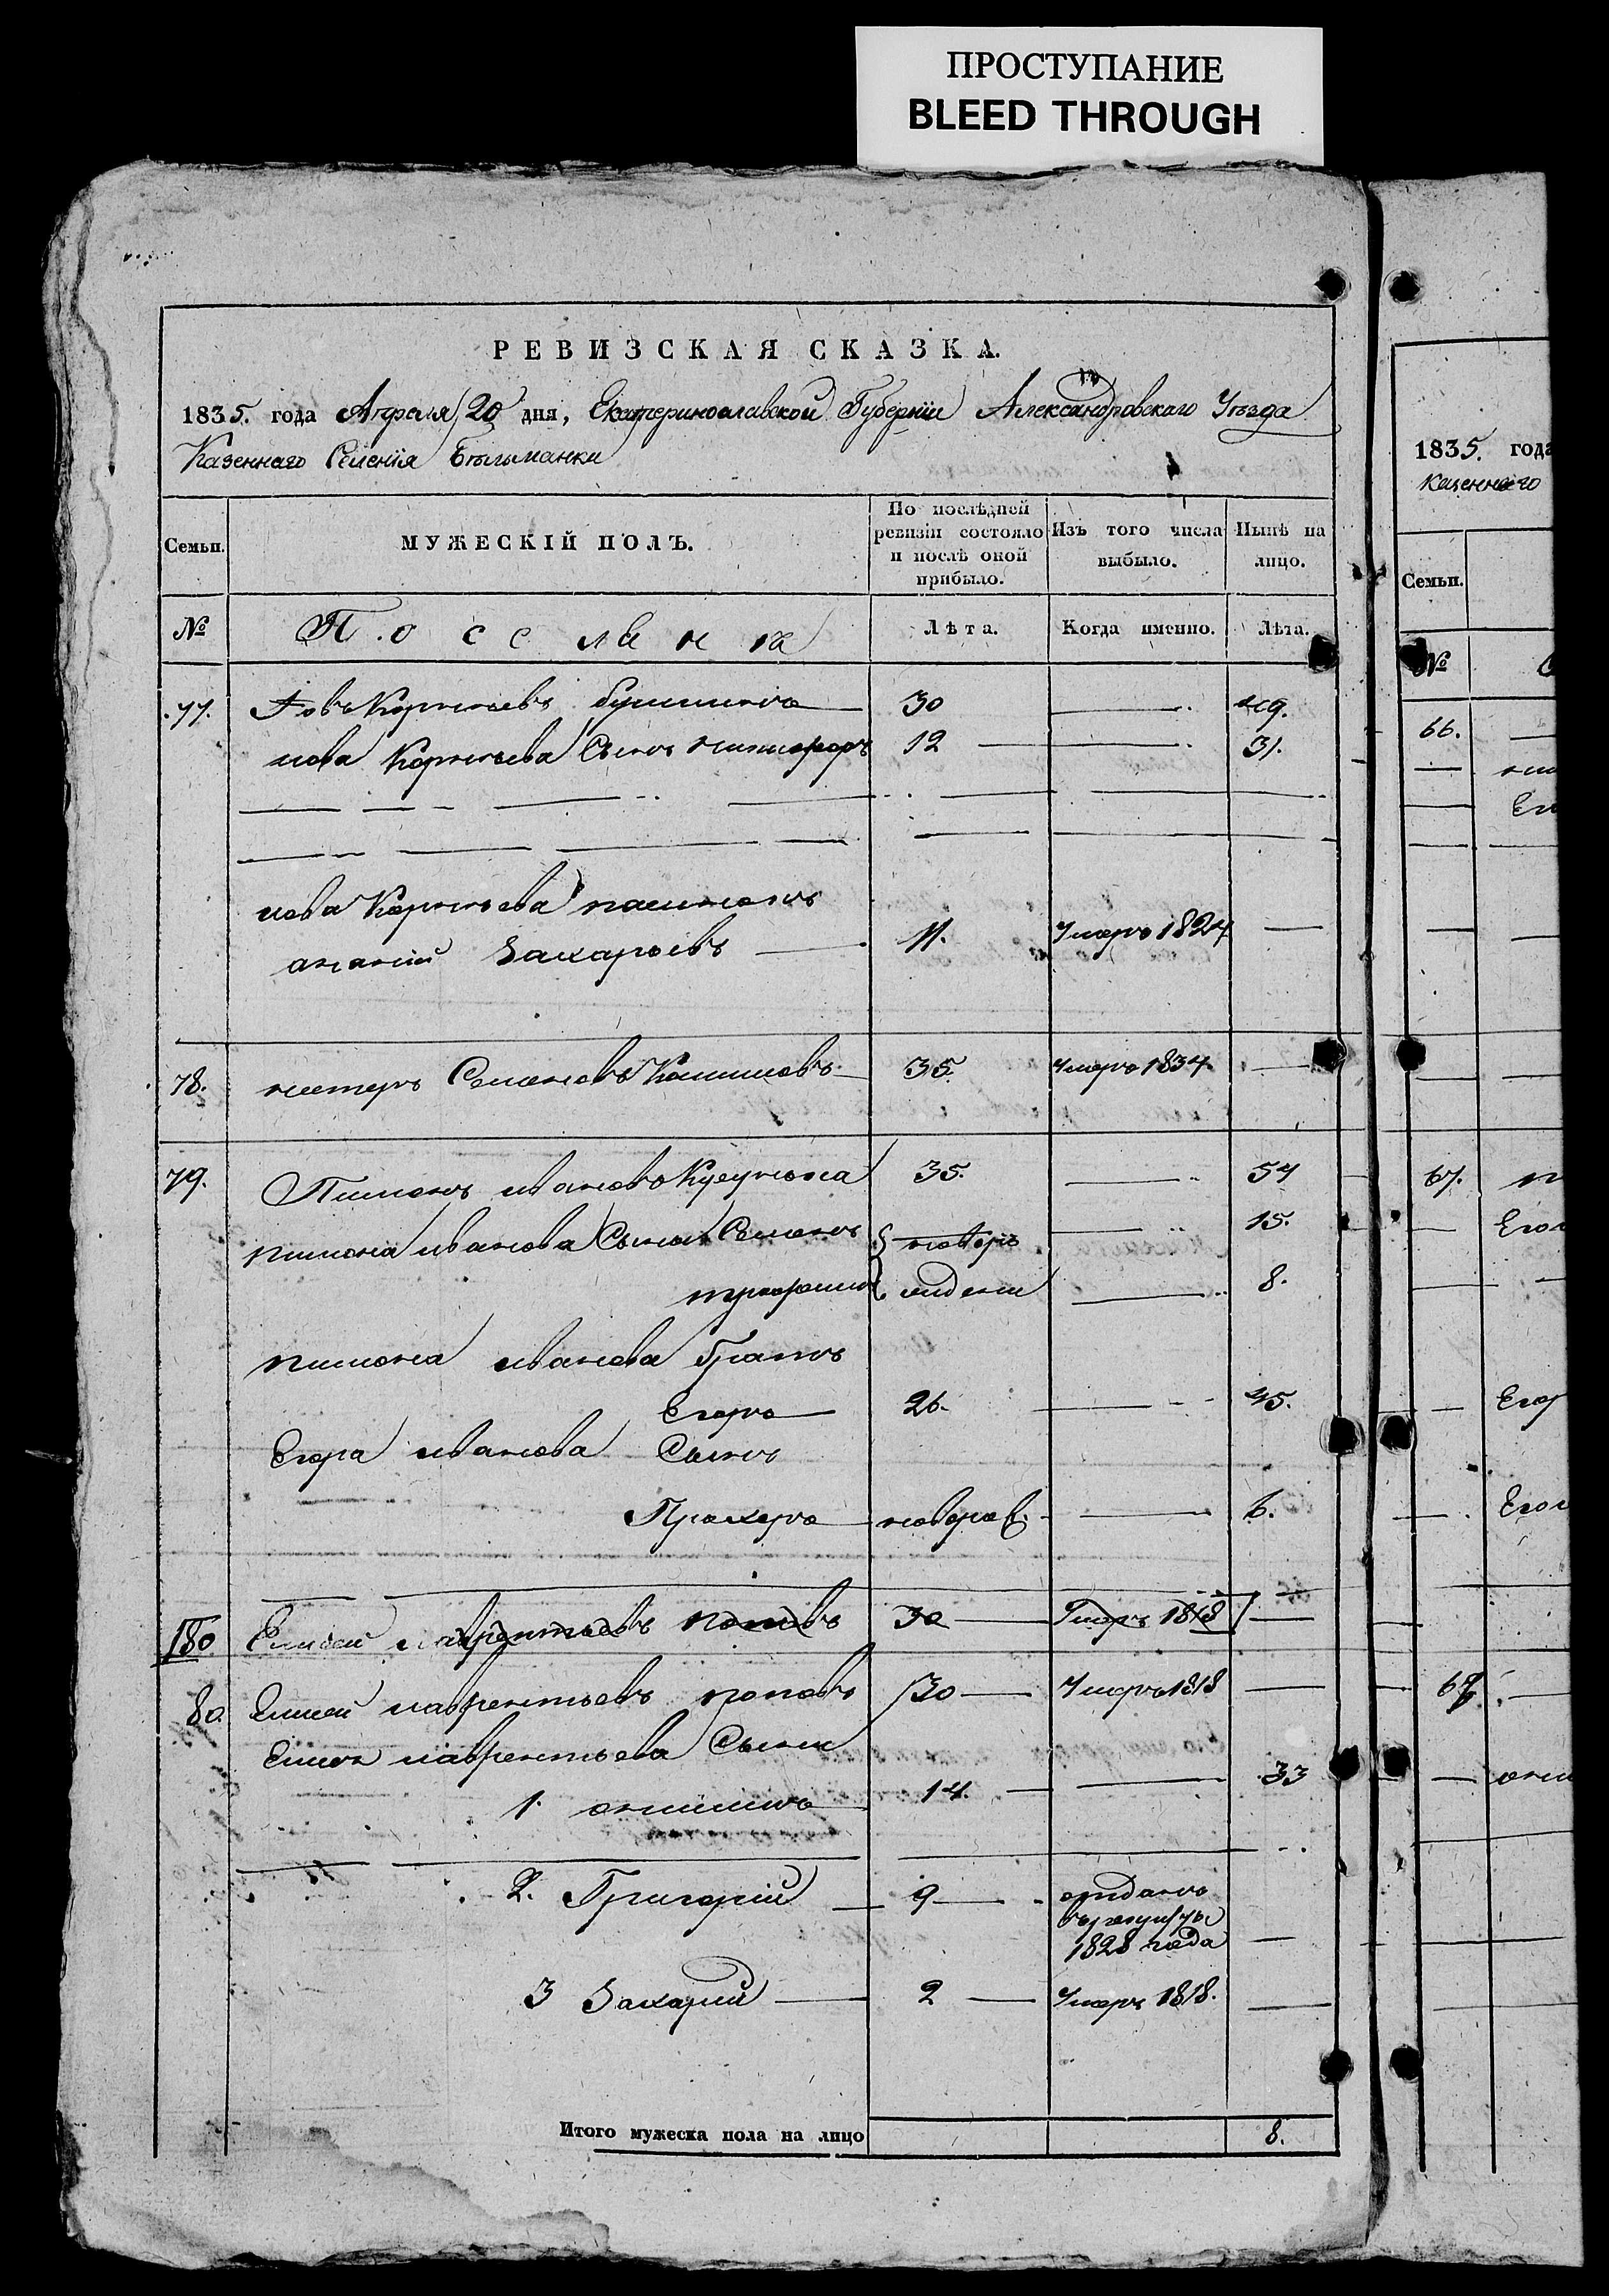 ПРОСТУПАНИЕ
BLEED THROUGH
РЕВИЗСКАЯ СКАЗКА.
1835. года Апреля 20 дня, Екатеринославской Губерніи Александровскаго Уѣзда
Казеннаго Селенія Бѣльманки
Семьи. МУЖЕСКІЙ ПОЛЪ. По послѣдней ревизіи состояло и послѣ оной прибыло. Изъ того числа выбыло. Нынѣ на лицо.
№ Лѣта. Когда именно. Лѣта.
77. Іовъ Корнѣевъ 30 49.
иова Корнѣева Сынъ никифоръ 12 31.
иова Корнѣева пасынокъ
ананій Захарьевъ 11. Умеръ 1824
78. петеръ Семеновъ 35. Умеръ 1834.
79. Пимонъ ивановъ 35. 54
пимона иванова Сыны Семенъ новоро 15.
трофимъ жденн 8.
пимона иванова братъ
Егоръ 26. 45.
Егора иванова Сынъ
Прохоръ новорож. 6.
180. Елисей лаврентьевъ поповъ 30 Умеръ 1818
80. Елисей лаврентьевъ поповъ 30 Умеръ 1818
Елисея лаврентьева Сыны
1. онисимъ 14. 33
2. Григорій 9 отданъ
въ рекруты
1828 года
3 Захарий 2 Умеръ 1818.
Итого мужеска пола на лицо 8.
1835. года
Казеннаго
Семьи.
№
66.
67.